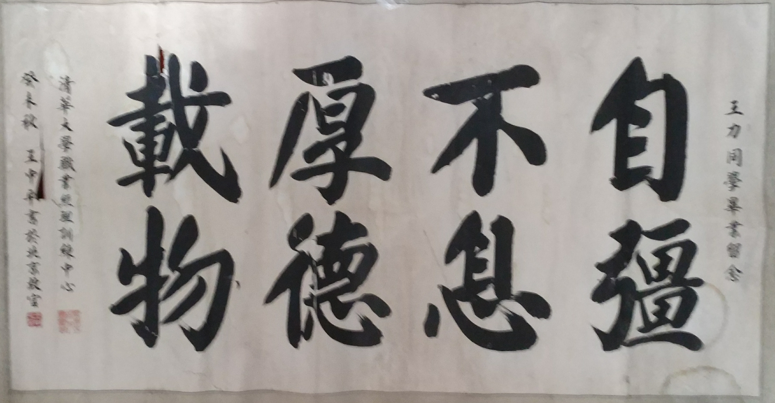 王力同學畢業留念
自彊
不息
厚德
載物
清華大學職業經理訓練中心
癸未秋 王中平書於北京故宮